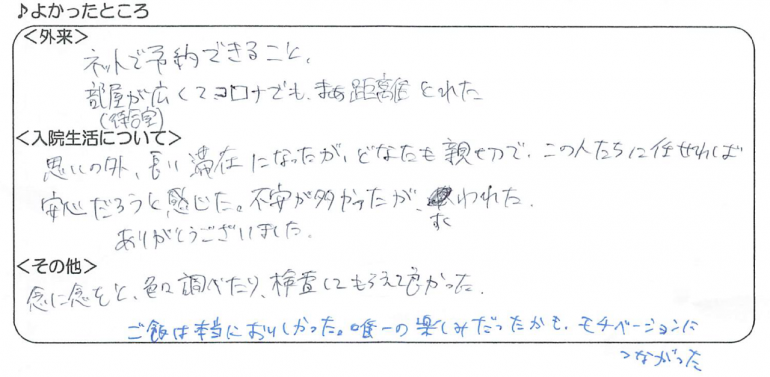 ♪よかったところ
＜外来＞
ネットで予約できること、
部屋が広くてコロナでも、まあ距離をとれた
(待合室)
＜入院生活について＞
思いの外、長い滞在になったが、どなたも親切で、この人たちに任せれば
安心だろうと感じた。不安が多かったが、すくわれた。
ありがとうございました。
＜その他＞
念に念をと、色々調べたり、検査してもらえて良かった。
ご飯は本当においしかった。唯一の楽しみだったかも、モチベーションに
つながった